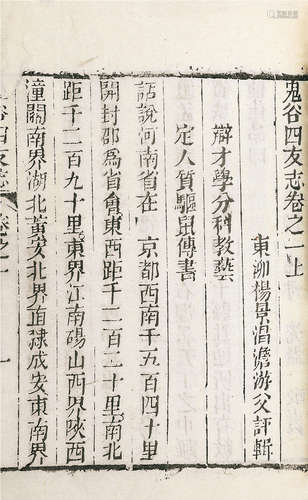 鬼谷四友志卷之一上
東泖楊景淐澹游父評輯
辯才學分科教藝
定人質驅鼠傳書
話說河南省在 京都西南千五百四十里
開封郡為省會東西距千二百三十里南北
距千二百九十里東界江南碭山西界陝西
潼關南界湖北黃安北界直隸成安東南界
谷四友志 卷之一